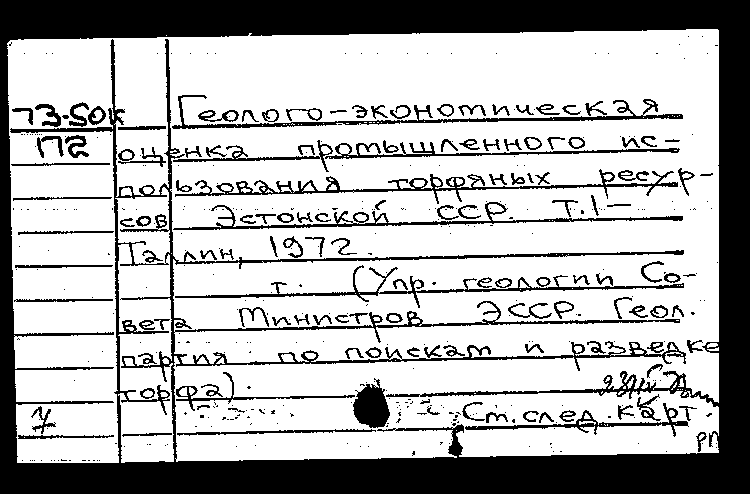 73-50к Геолого-экономическая
П72 оценка промышленного ис-
пользования торфяных ресур-
сов Эстонской ССР. Т.1-
Таллин, 1972.
т. (Упр. геологии Со-
вета Министров ЭССР. Геол.
партия по поискам и разведке
торфа).
7 См. след. карт.
РП